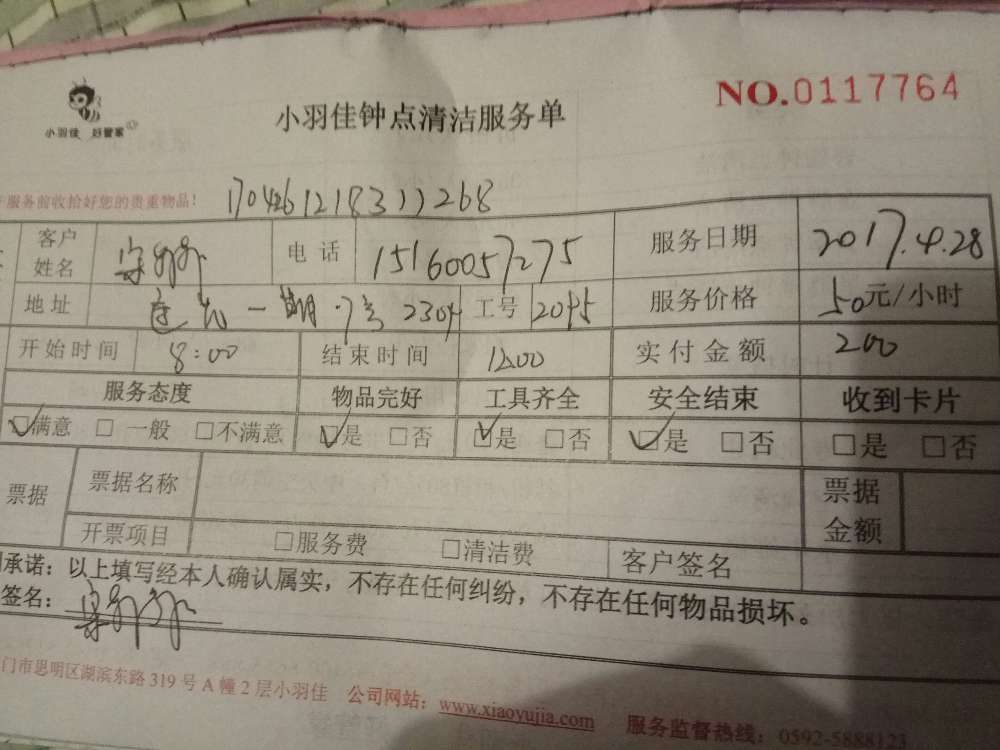 小羽佳 好管家
小羽佳钟点清洁服务单
NO.0117764
服务前收拾好您的贵重物品!
客户姓名 电话 15160057275 服务日期 2017.4.28
地址 一期 2304 工号 2045 服务价格 50元/小时
开始时间 8:00 结束时间 12:00 实付金额 200
服务态度 物品完好 工具齐全 安全结束 收到卡片
☑满意 □一般 □不满意 ☑是 □否 ☑是 □否 ☑是 □否 □是 □否
票据 票据名称 票据金额
开票项目 □服务费 □清洁费 客户签名
承诺：以上填写经本人确认属实，不存在任何纠纷，不存在任何物品损坏。
签名：
门市思明区湖滨东路319号A幢2层小羽佳 公司网站：www.xiaoyujia.com 服务监督热线：0592-5888123